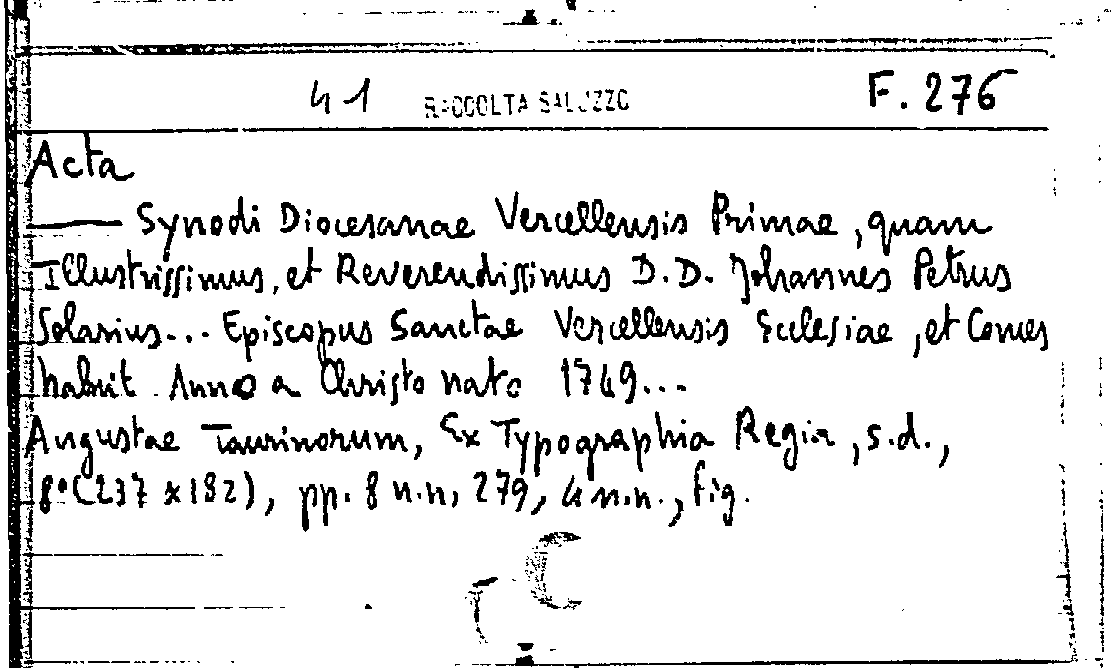 41 RACCOLTA SALUZZO F. 276
Acta
—— Synodi Diocesanae Vercellensis Primae, quam
Illustrissimus, et Reverendissimus D.D. Johannes Petrus
Solarius... Episcopus Sanctae Vercellensis Ecclesiae, et Comes
habuit Anno a Christo nato 1749...
Augustae Taurinorum, Ex Typographia Regia, s.d.,
8° (237 x 182), pp. 8 n.n, 279, 4 n.n., fig.